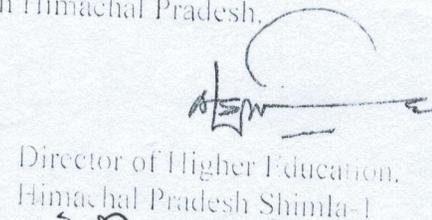 n Himachal Pradesh.
Director of Higher Education,
Himachal Pradesh Shimla-1